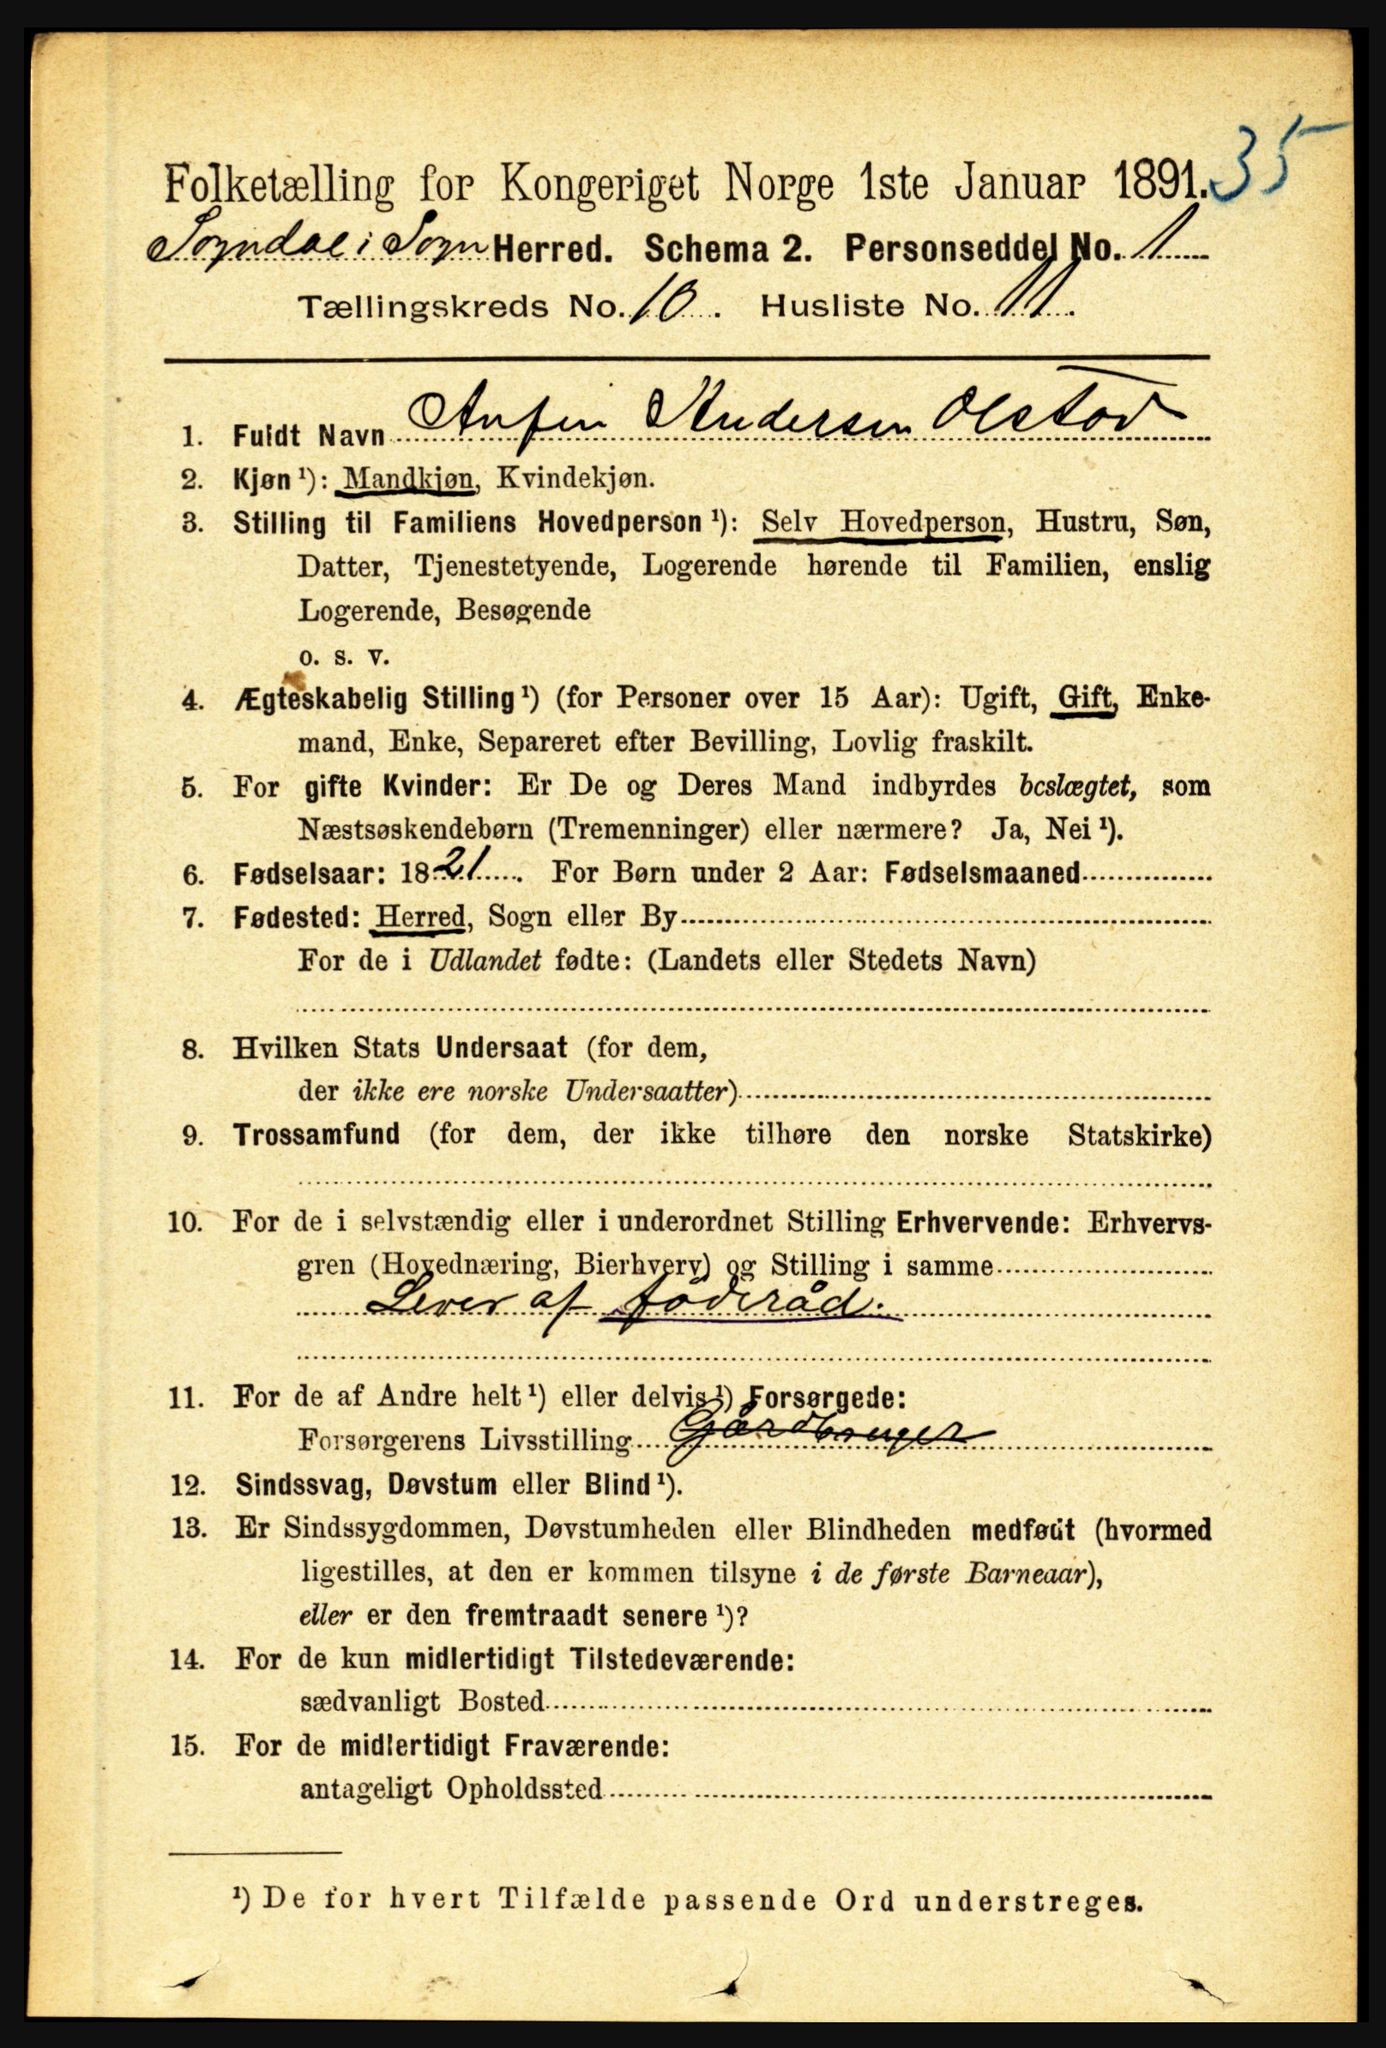 35
Folketælling for Kongeriget Norge 1ste Januar 1891.
Sogndal i Sogn Herred. Schema 2. Personseddel No. 1
Tællingskreds No. 10. Husliste No. 11.
1. Fuldt Navn Anfin Andersen Olstad
2. Kjøn ¹): Mandkjøn, Kvindekjøn.
3. Stilling til Familiens Hovedperson ¹): Selv Hovedperson, Hustru, Søn,
Datter, Tjenestetyende, Logerende hørende til Familien, enslig
Logerende, Besøgende
o. s. v.
4. Ægteskabelig Stilling ¹) (for Personer over 15 Aar): Ugift, Gift, Enke-
mand, Enke, Separeret efter Bevilling, Lovlig fraskilt.
5. For gifte Kvinder: Er De og Deres Mand indbyrdes beslægtet, som
Næstsøskendebørn (Tremenninger) eller nærmere? Ja, Nei ¹).
6. Fødselsaar: 1821. For Børn under 2 Aar: Fødselsmaaned
7. Fødested: Herred, Sogn eller By
For de i Udlandet fødte: (Landets eller Stedets Navn)
8. Hvilken Stats Undersaat (for dem,
der ikke ere norske Undersaatter)
9. Trossamfund (for dem, der ikke tilhøre den norske Statskirke)
10. For de i selvstændig eller i underordnet Stilling Erhvervende: Erhvervs-
gren (Hovednæring, Bierhverv) og Stilling i samme
Lever af föderåd.
11. For de af Andre helt ¹) eller delvis ¹) Forsørgede:
Forsørgerens Livsstilling Gårdbruger
12. Sindssvag, Døvstum eller Blind ¹).
13. Er Sindssygdommen, Døvstumheden eller Blindheden medfødt (hvormed
ligestilles, at den er kommen tilsyne i de første Barneaar),
eller er den fremtraadt senere ¹)?
14. For de kun midlertidigt Tilstedeværende:
sædvanligt Bosted
15. For de midlertidigt Fraværende:
antageligt Opholdssted
¹) De for hvert Tilfælde passende Ord understreges.